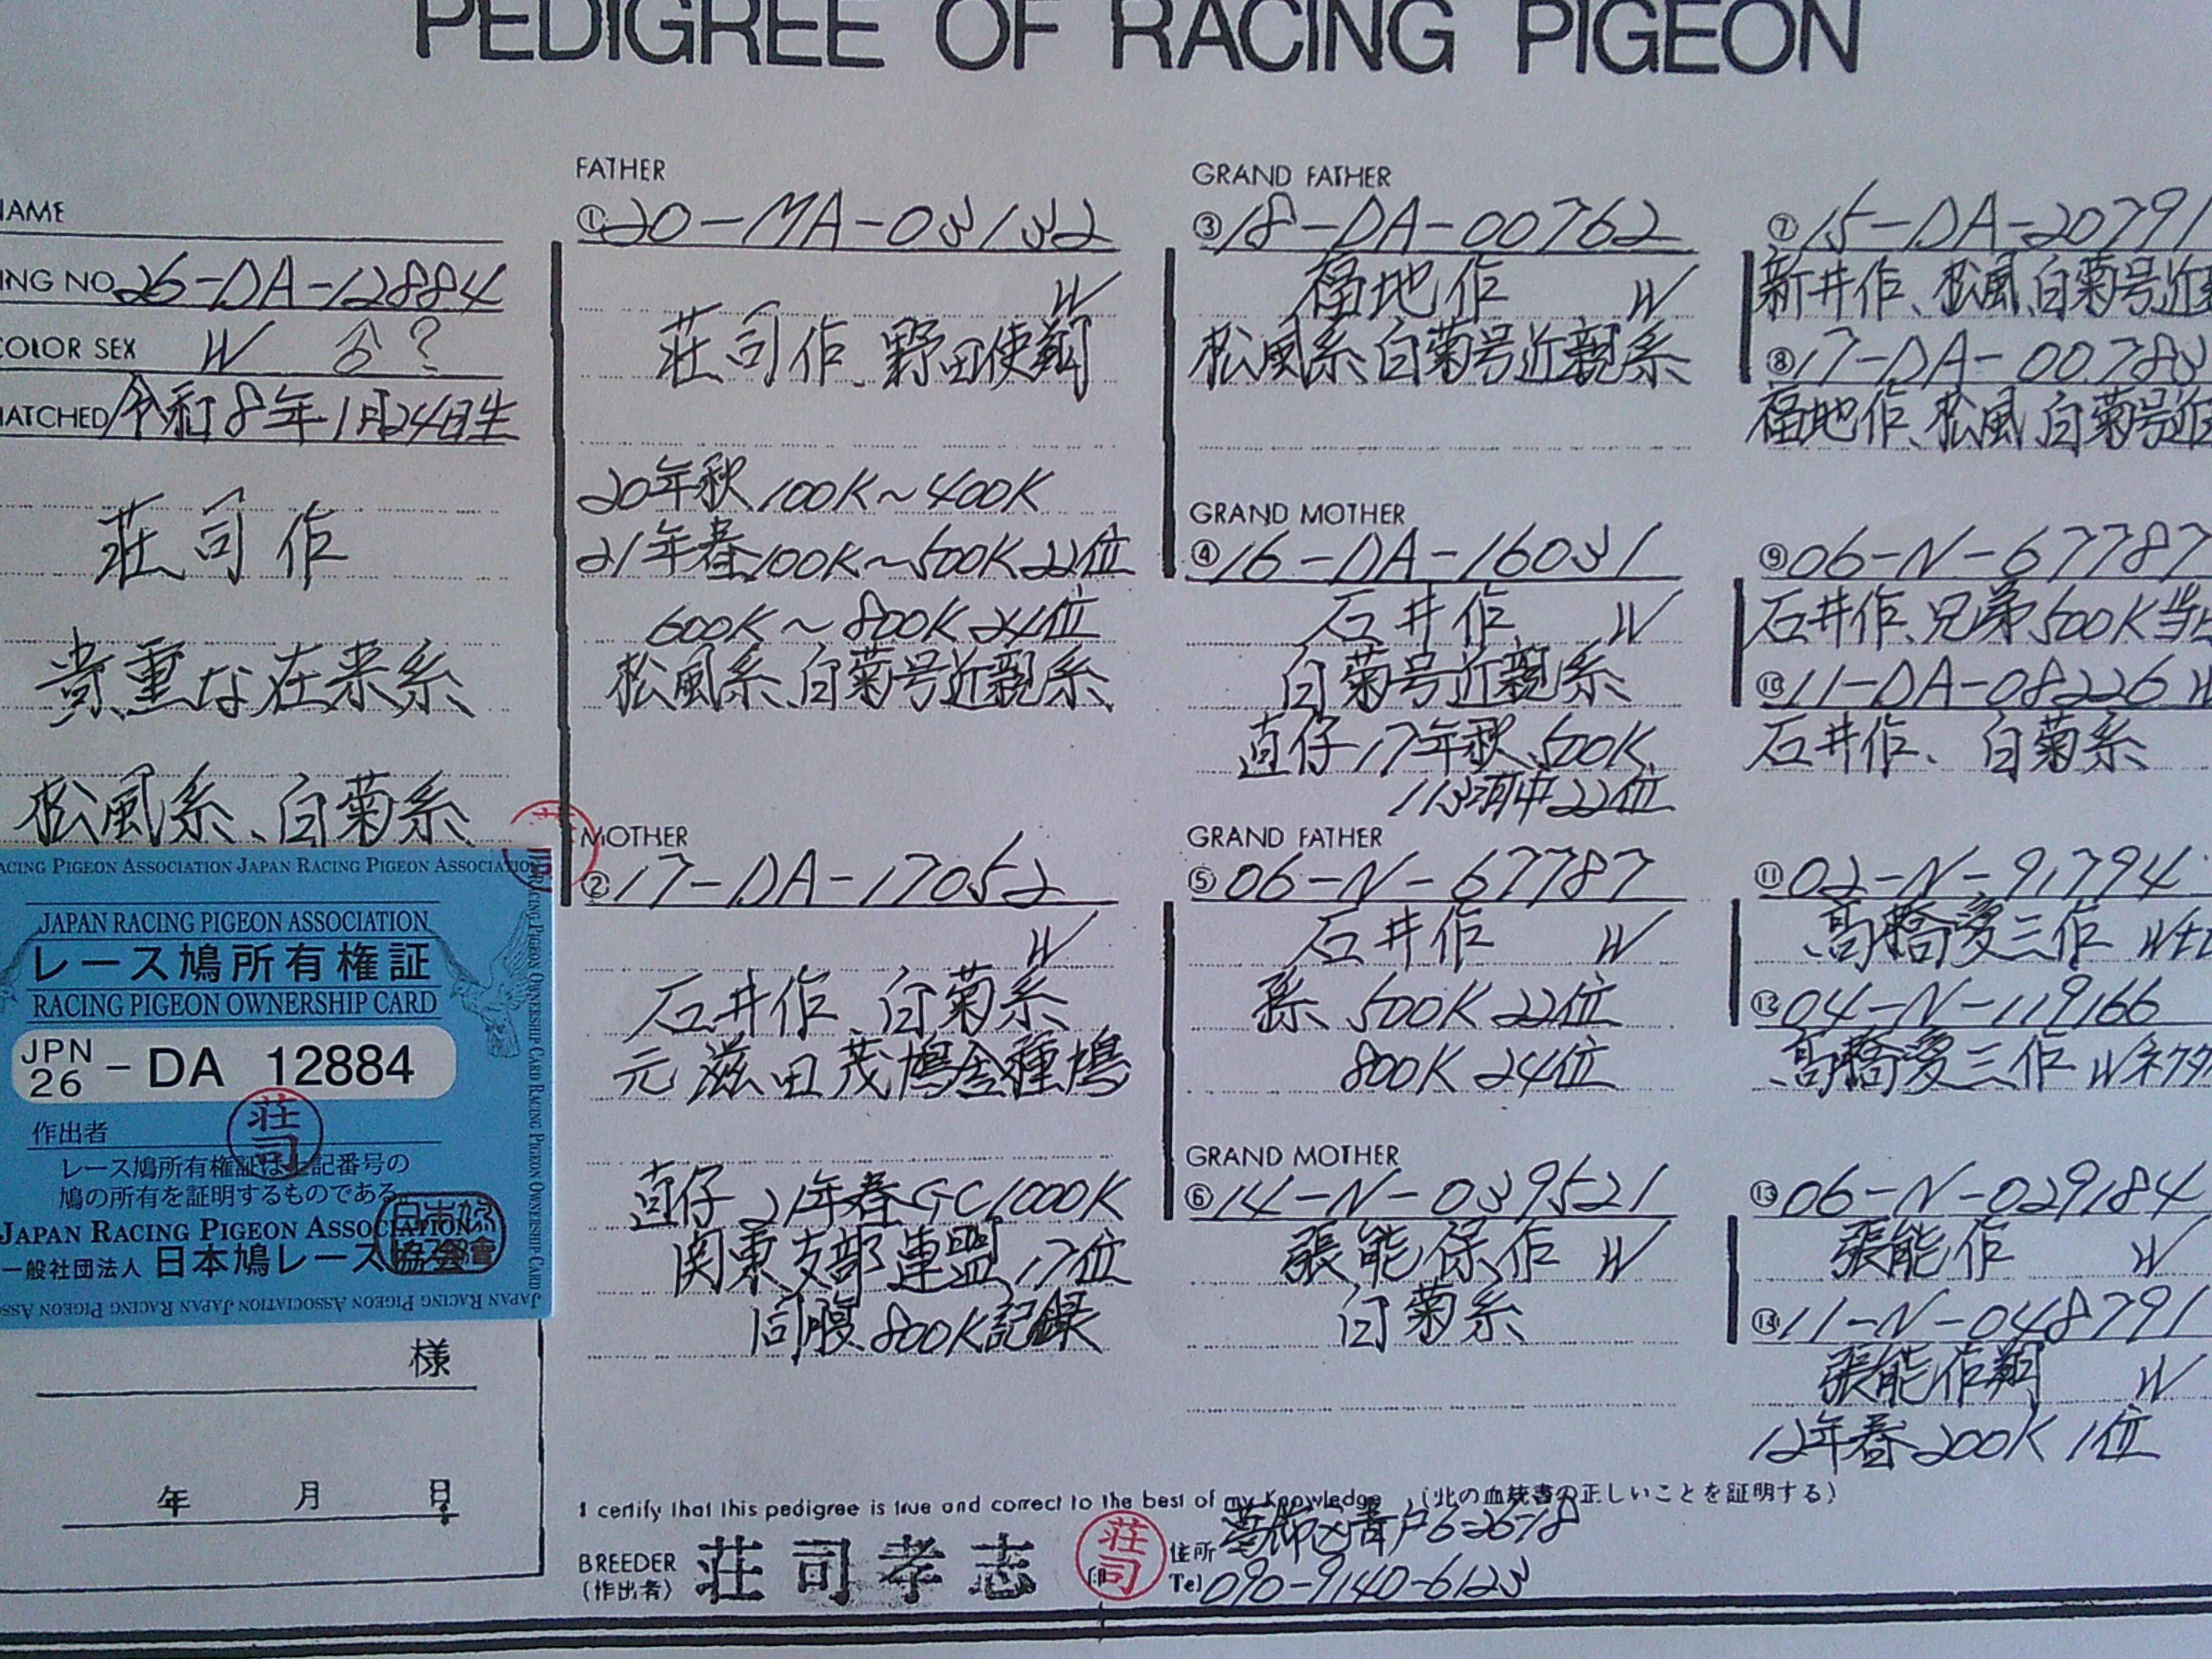 PEDIGREE OF RACING PIGEON
NAME
ING NO. 26-DA-12884
COLOR SEX W ?
HATCHED 令和8年1月24日生
荘司作
貴重な在来系
松風系、白菊系
ACING PIGEON ASSOCIATION JAPAN RACING PIGEON ASSOCIATION
JAPAN RACING PIGEON ASSOCIATION
レース鳩所有権証
RACING PIGEON OWNERSHIP CARD
JPN 26 - DA 12884
作出者
荘司
レース鳩所有権証は上記番号の
鳩の所有を証明するものである。
JAPAN RACING PIGEON ASSOCIATION
一般社団法人 日本鳩レース協会
様
年 月 日
FATHER
① 20-MA-03132
W
荘司作、野田使翔
20年秋100K~400K
21年春100K~500K22位
600K~800K24位
松風系、白菊号近親系
MOTHER
② 17-DA-17052
W
石井作、白菊系
元滋田茂鳩舎種鳩
直仔 21年春GC1000K
関東支部連盟17位
同腹800K記録
GRAND FATHER
③ 18-DA-00762
福地作 W
松風系、白菊号近親系
GRAND MOTHER
④ 16-DA-16031
石井作 W
白菊号近親系
直仔17年秋、500K
113羽中22位
GRAND FATHER
⑤ 06-N-67787
石井作 W
孫 500K 22位
800K 24位
GRAND MOTHER
⑥ 14-N-039521
張能保作 W
白菊系
⑦ 15-DA-20791
新井作、松風、白菊号近
⑧ 17-DA-00783
福地作、松風、白菊号近
⑨ 06-N-67787
石井作、兄弟500K当
⑩ 11-DA-08226 W
石井作、白菊系
⑪ 02-N-91794
高橋愛三作 W
⑫ 04-N-119166
高橋愛三作 W
⑬ 06-N-029184
張能作 W
⑭ 11-N-048791
張能作翔 W
12年春200K 1位
I certify that this pedigree is true and correct to the best of my knowledge (此の血統書の正しいことを証明する)
BREEDER (作出者) 荘司孝志 印 荘司
住所 葛飾区青戸6-26-18
Tel 090-9140-6123